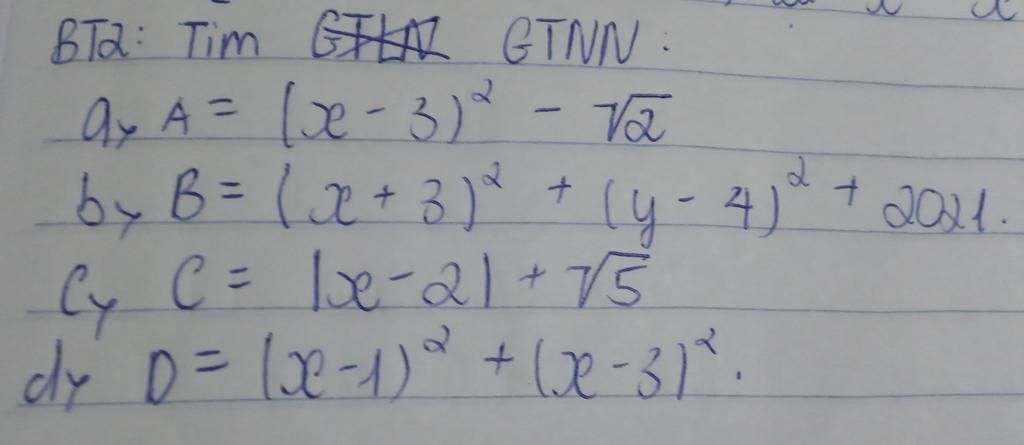 BT2: Tìm GTLN GTNN:
a, A = (x - 3)² - √2
b, B = (x + 3)² + (y - 4)² + 2021.
c, C = |x - 2| + √5
d, D = (x - 1)² + (x - 3)².